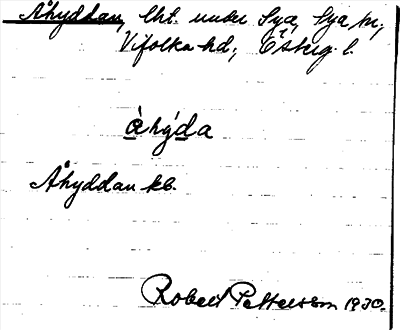 Åhyddan, lht. under Sya, Sya sn,
Vifolka hd, Österg. l.
àhýda
Åhyddan kb.
Robert Pettersson 1930.